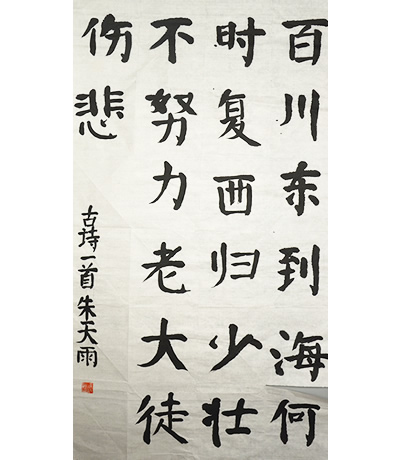 百川东到海何
时复西归少壮
不努力老大徒
伤悲
古诗一首 朱天雨